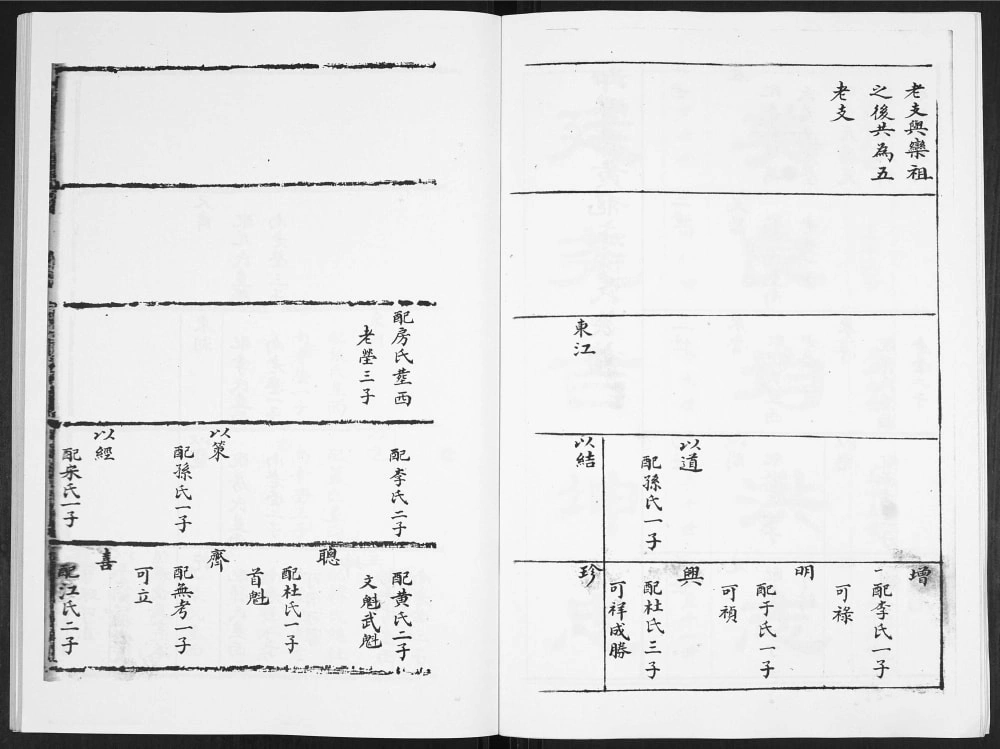 老支與欒祖
之後共為五
老支
東江
以道
配孫氏一子
以結
增
配李氏一子
可祿
明
配于氏一子
可禎
興
配杜氏三子
可祥成勝
珍
配房氏塟西
老塋三子
配李氏二子
以策
配孫氏一子
以經
配宋氏一子
配黄氏二子
文魁武魁
聰
配杜氏一子
首魁
齊
配無考一子
可立
喜
配江氏二子